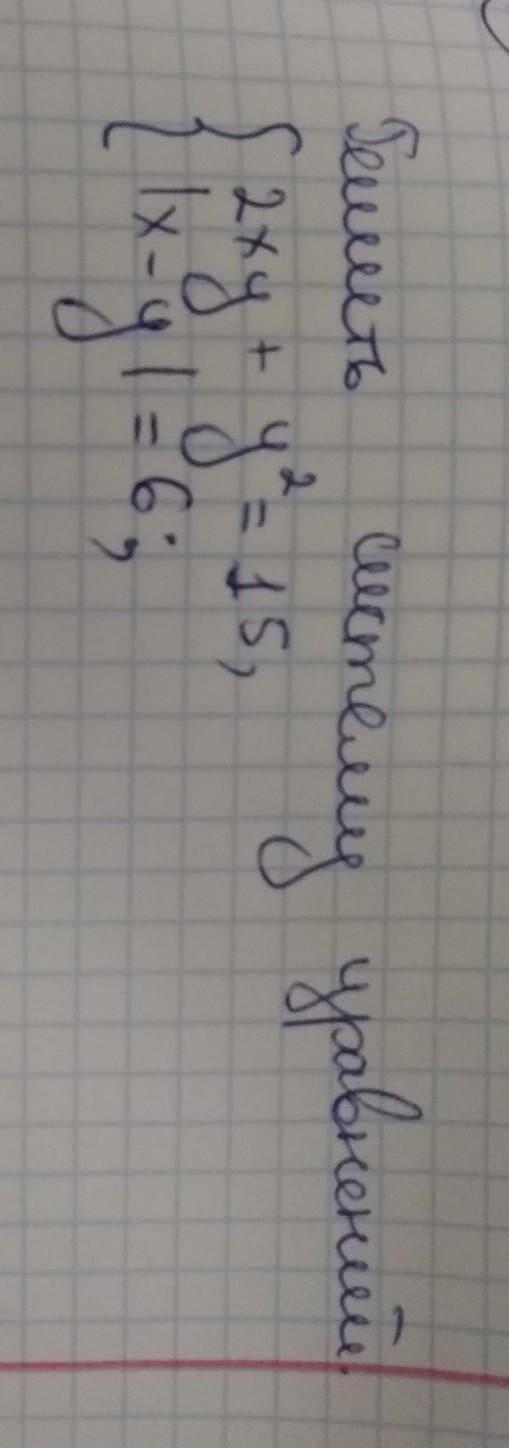 Решить систему уравнений.
{ 2xy + y² = 15,
|x - y| = 6;